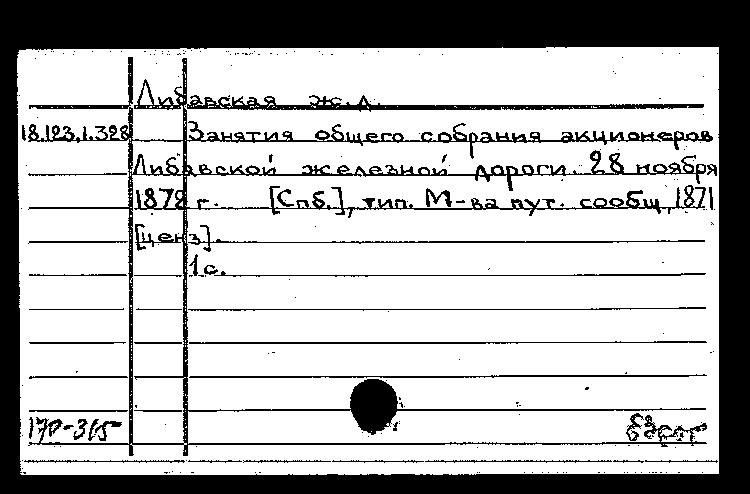 Либавская ж.д.
18.123.1.328 Занятия общего собрания акционеров
Либавской железной дороги. 28 ноября
1872 г. [Спб.], тип. М-ва пут. сообщ, 1871
[ценз].
1 с.
170-365